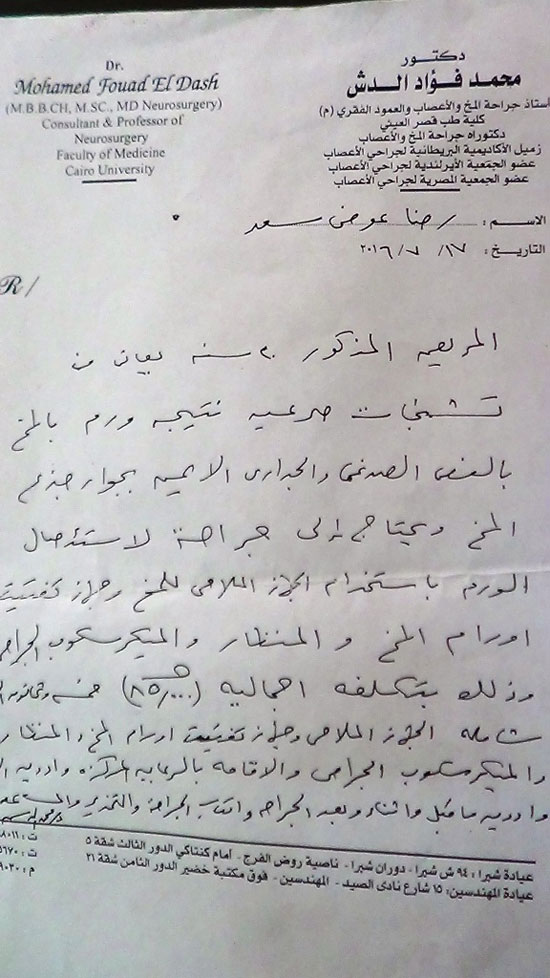 Dr.
Mohamed Fouad El Dash
(M.B.B.CH, M.SC., MD Neurosurgery)
Consultant & Professor of
Neurosurgery
Faculty of Medicine
Cairo University
دكتـــور
محمد فؤاد الـدش
أستاذ جراحة المخ والأعصاب والعمود الفقري (م)
كلية طب قصر العيني
دكتوراه جراحة المخ والأعصاب
زميل الأكاديمية البريطانية لجراحي الأعصاب
عضو الجمعية الأيرلندية لجراحي الأعصاب
عضو الجمعية المصرية لجراحي الأعصاب
الاسم : رضا عوض سعد
التاريخ : ١٧/ ٧ /٢٠١٦
R/
المريض المذكور ٢٠ سنه يعانى من
تشنجات صرعيه نتيجه ورم بالمخ
بالفص الصدغى والجدارى الايمن بجوار جذع
المخ ويحتاج إلى جراحة لاستئصال
الورم باستخدام الجهاز الملاحى للمخ وجهاز تفتيت
اورام المخ والمنظار والميكرسكوب
وذلك بتكلفه اجماليه (٨٥,٠٠٠)
شامله الجهاز الملاحى وجهاز تفتيت اورام المخ والمنظار
والميكرسكوب الجراحى والاقامه بالرعايه المركزه وادويه
وادويه ماقبل واثناء وبعد الجراحه واتعاب الجراحة والتخدير
عيادة شبرا : ٩٤ ش شبرا - دوران شبرا - ناصية روض الفرج - أمام كنتاكي الدور الثالث شقة ٥
عيادة المهندسين: ١٥ شارع نادى الصيد - المهندسين - فوق مكتبة خضير الدور الثامن شقة ٢١